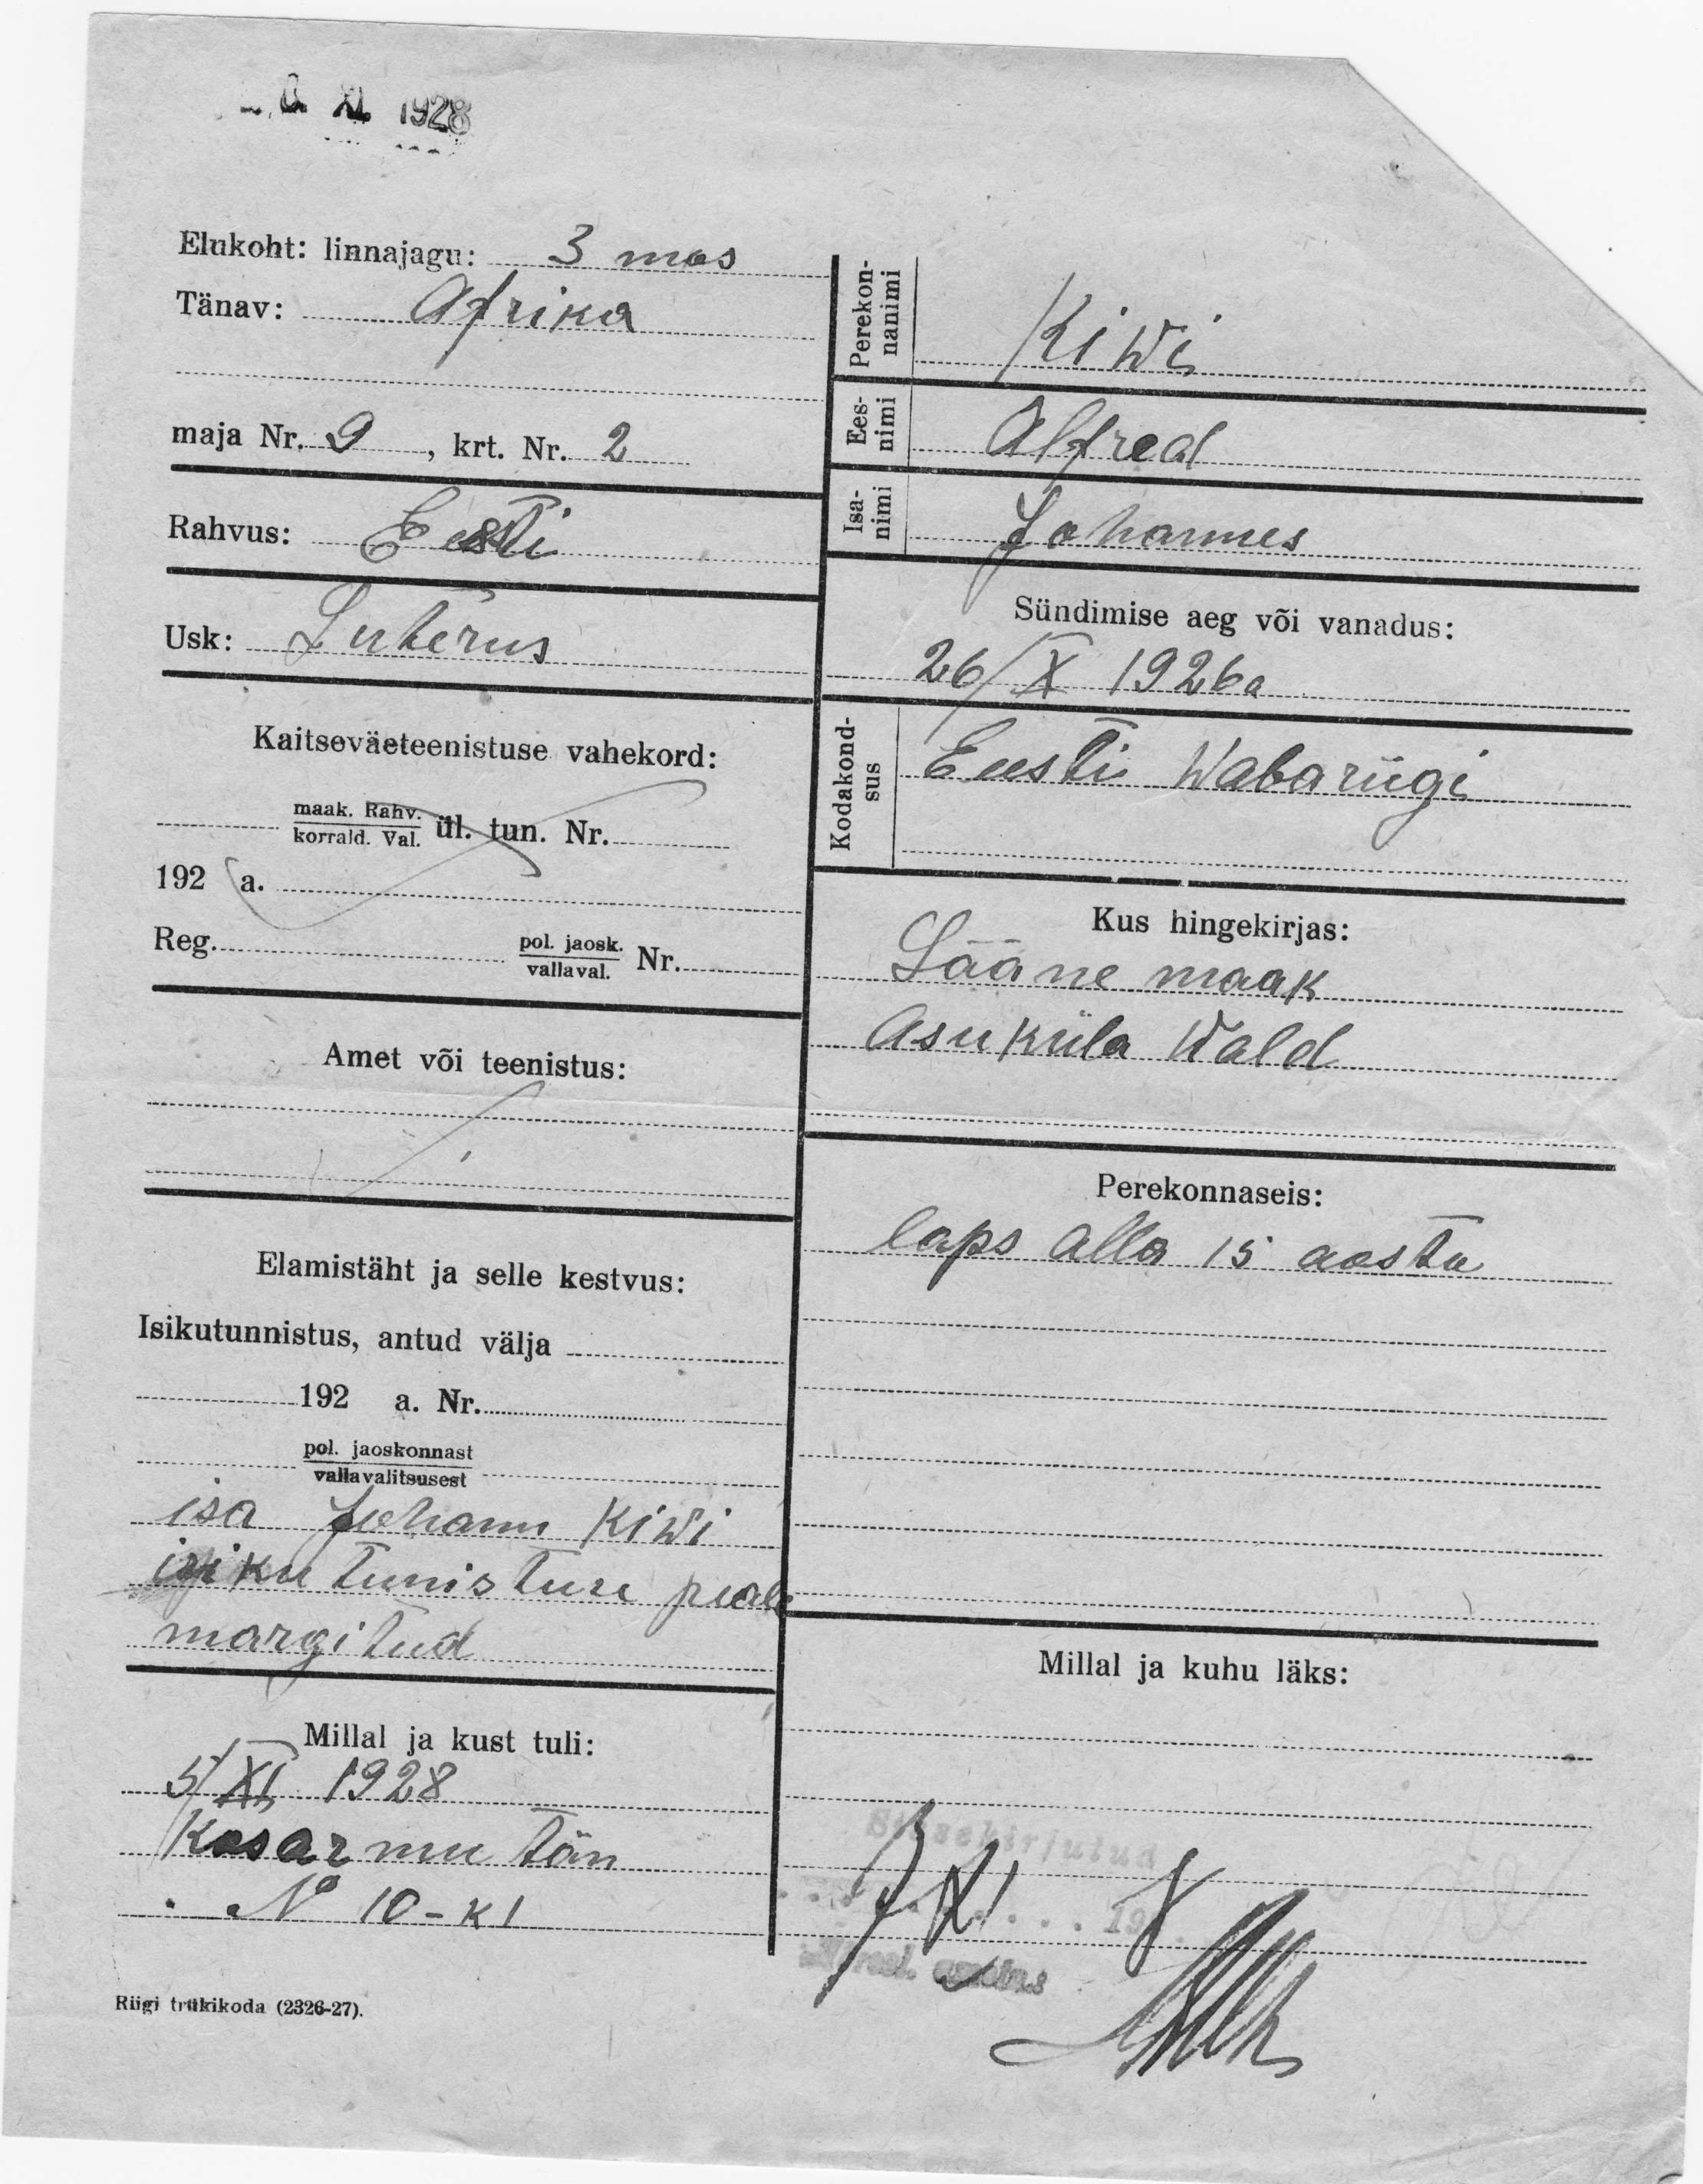 XI 1928
Elukoht: linnajagu: 3 mas
Tänav: Afrika
maja Nr. 9, krt. Nr. 2
Rahvus: Eesti
Usk: Luterus
Kaitseväeteenistuse vahekord:
maak. Rahv.
korrald. Val. ül. tun. Nr.
192 a.
Reg. pol. jaosk.
vallaval. Nr.
Amet või teenistus:
Elamistäht ja selle kestvus:
Isikutunnistus, antud välja
192 a. Nr.
pol. jaoskonnast
vallavalitsusest
isa Johann Kiwi
isiku tunistuse peale
margitud
Millal ja kust tuli:
5/XI 1928
Kasarmu tän
№ 10-k1
Riigi trükikoda (2326-27).
Perekon-
nanimi
Kiwi
Ees-
nimi
Alfred
Isa-
nimi
Johannes
Sündimise aeg või vanadus:
26/X 1926a
Kodakond-
sus
Eesti Wabariigi
Kus hingekirjas:
Lääne maak
Asuküla Wald
Perekonnaseis:
laps alla 15 aasta
Millal ja kuhu läks:
Sissekirjutud
7 XI 19